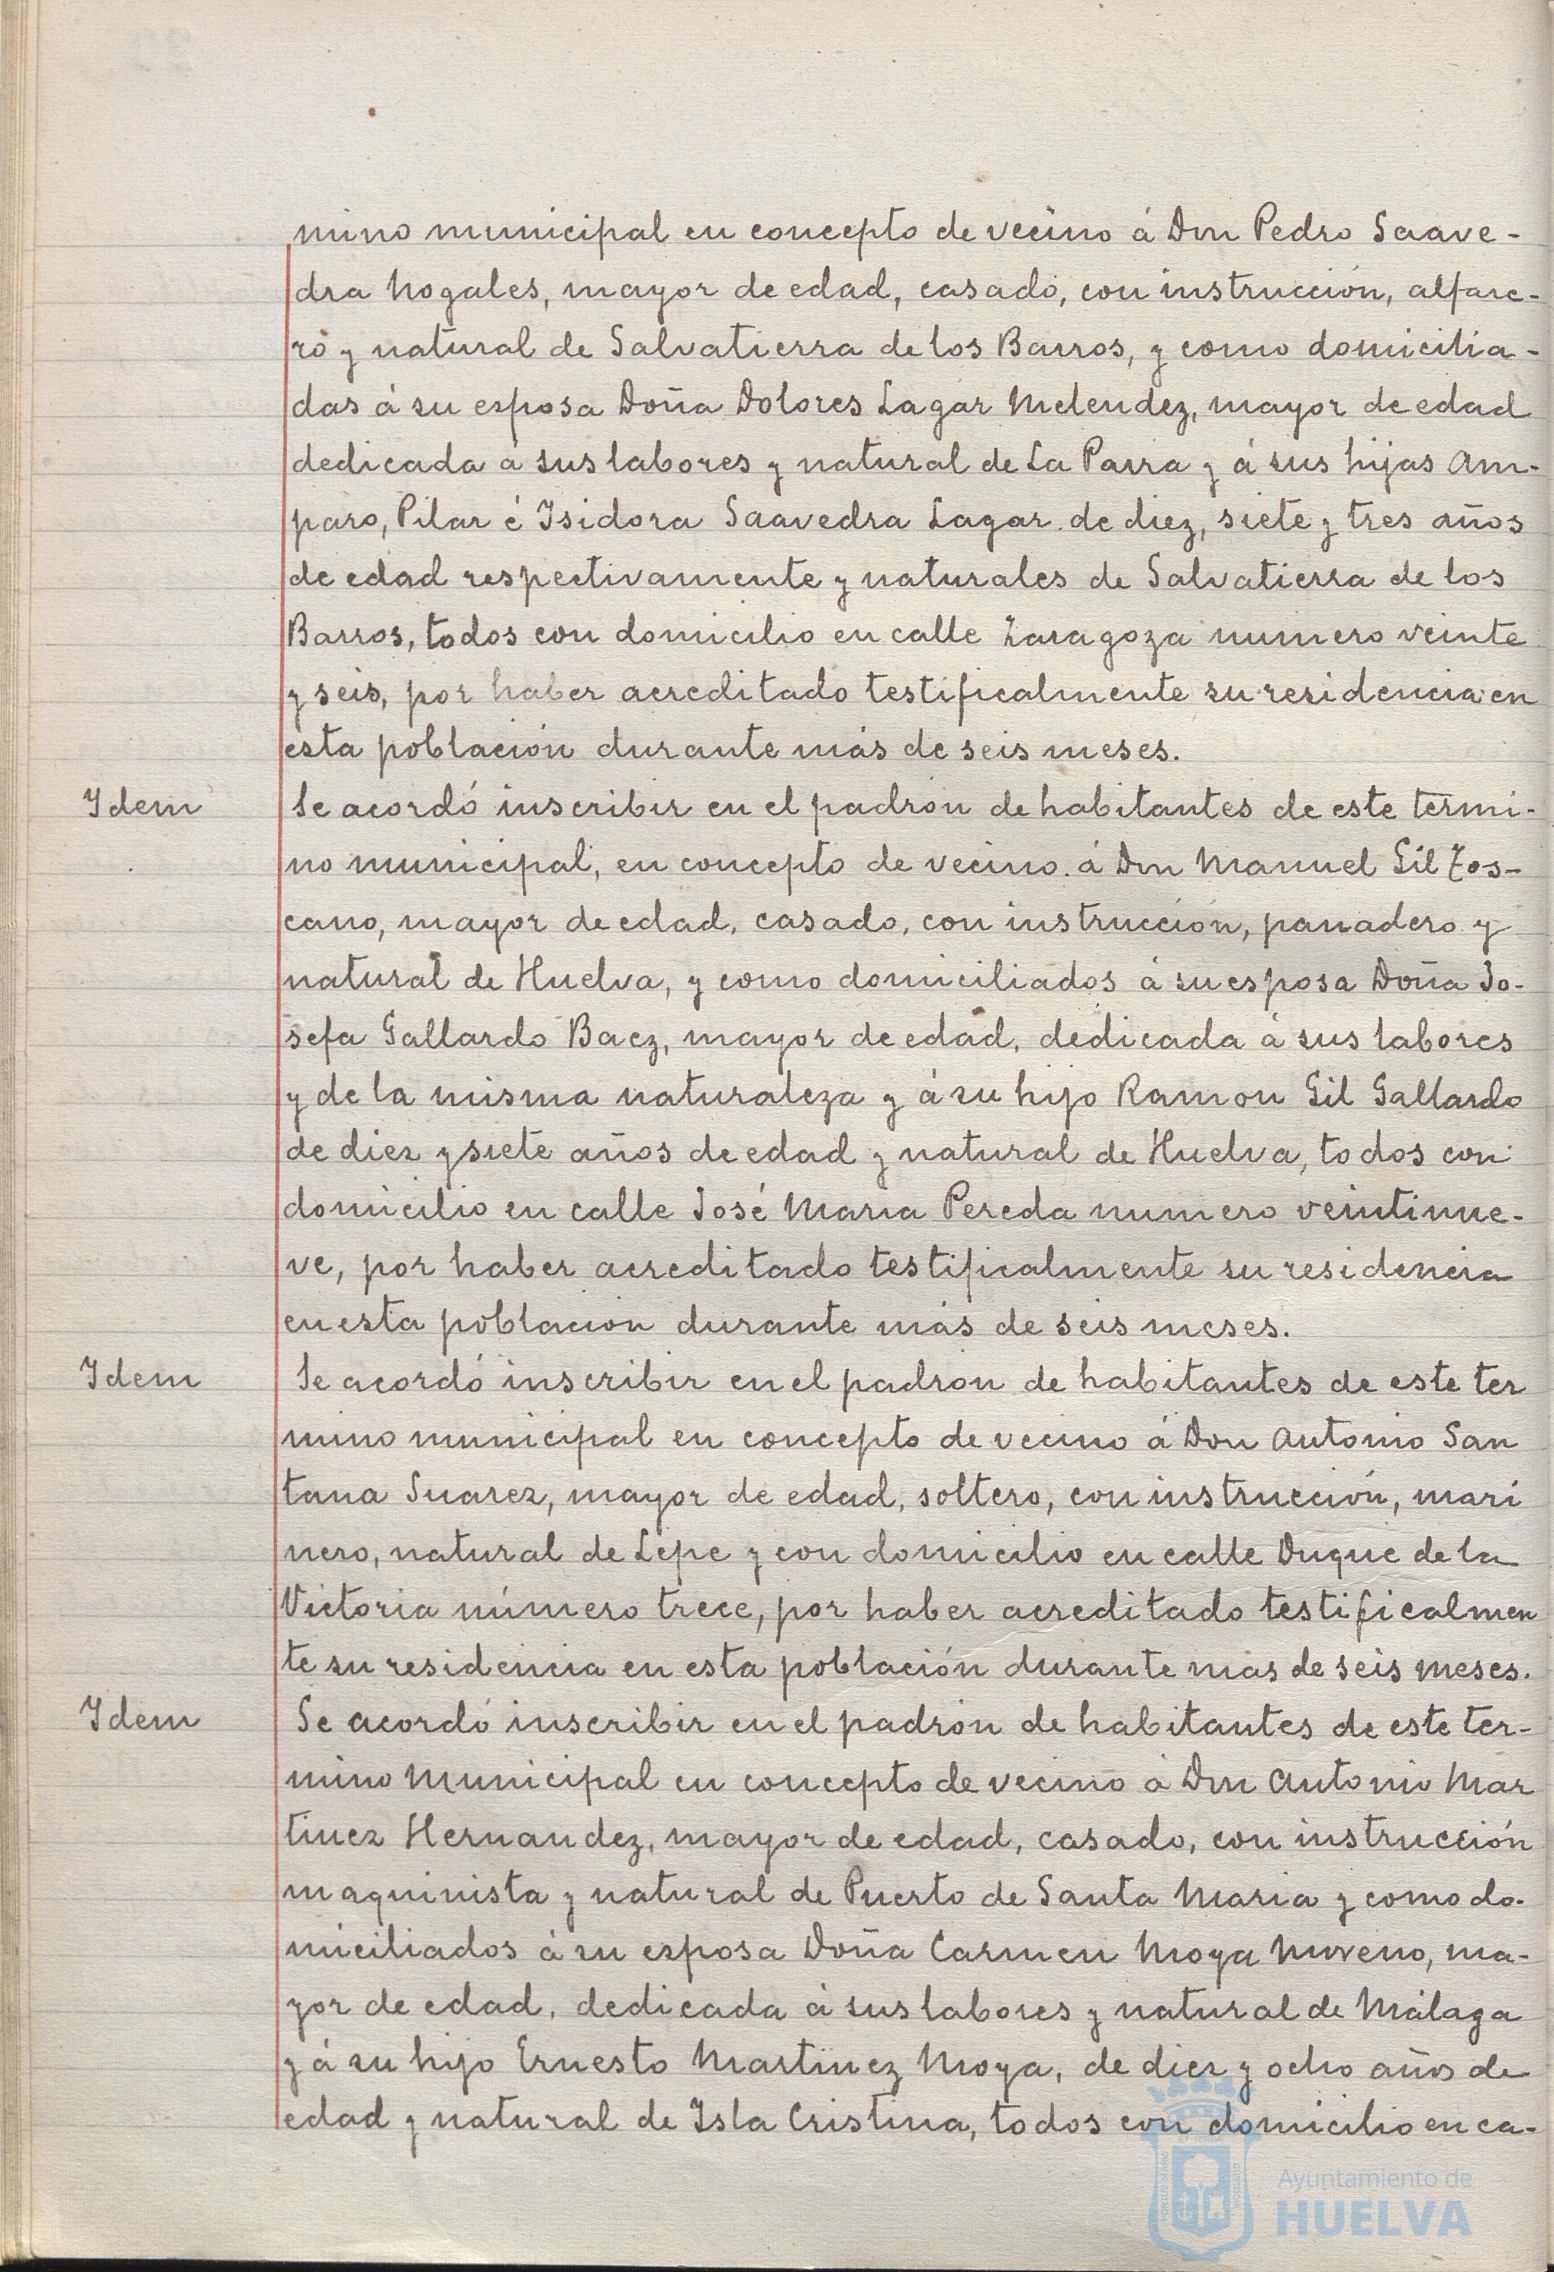 mino municipal en concepto de vecino á Don Pedro Saave-
dra Nogales, mayor de edad, casado, con instrucción, alfare-
ro y natural de Salvatierra de los Barros, y como domicilia-
das á su esposa Doña Dolores Lagar Melendez, mayor de edad
dedicada á sus labores y natural de La Parra y á sus hijas Am-
paro, Pilar é Isidora Saavedra Lagar de diez, siete y tres años
de edad respectivamente y naturales de Salvatierra de los
Barros, todos con domicilio en calle Zaragoza numero veinte
y seis, por haber acreditado testificalmente su residencia en
esta población durante más de seis meses.
Idem Se acordó inscribir en el padrón de habitantes de este termi-
no municipal, en concepto de vecino á Don Manuel Gil Tos-
cano, mayor de edad, casado, con instrucción, panadero y
natural de Huelva, y como domiciliados á su esposa Doña Jo-
sefa Gallardo Baez, mayor de edad, dedicada á sus labores
y de la misma naturaleza y á su hijo Ramon Gil Gallardo
de diez y siete años de edad y natural de Huelva, todos con
domicilio en calle José Maria Pereda numero veintinue-
ve, por haber acreditado testificalmente su residencia
en esta poblacion durante más de seis meses.
Idem Se acordó inscribir en el padron de habitantes de este ter
mino municipal en concepto de vecino á Don Antonio San
tana Suarez, mayor de edad, soltero, con instrucción, mari
nero, natural de Lepe y con domicilio en calle Duque de la
Victoria número trece, por haber acreditado testificalmen
te su residencia en esta población durante mas de seis meses.
Idem Se acordó inscribir en el padrón de habitantes de este ter-
mino municipal en concepto de vecino á Don Antonio Mar
tinez Hernandez, mayor de edad, casado, con instrucción
maquinista y natural de Puerto de Santa Maria y como do-
miciliados á su esposa Doña Carmen Moya Moreno, ma-
yor de edad, dedicada á sus labores y natural de Málaga
y á su hijo Ernesto Martinez Moya, de diez y ocho años de
edad y natural de Isla Cristina, todos con domicilio en ca-
Ayuntamiento de
HUELVA